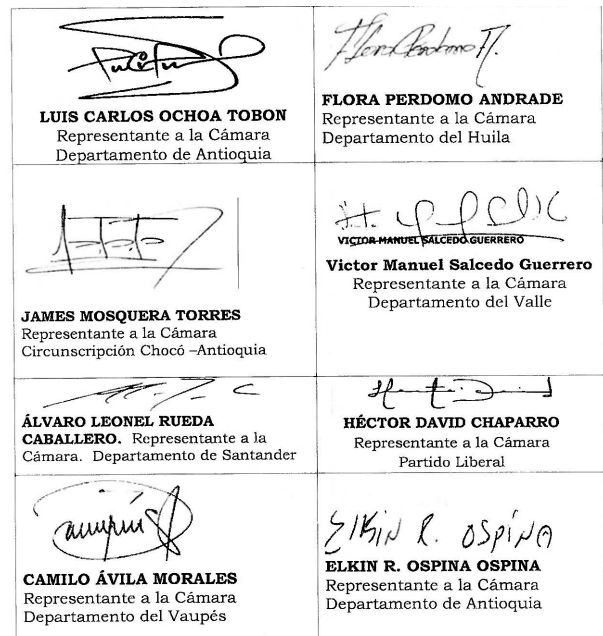 LUIS CARLOS OCHOA TOBON
Representante a la Cámara
Departamento de Antioquia
Flora Perdomo A.
FLORA PERDOMO ANDRADE
Representante a la Cámara
Departamento del Huila
JAMES MOSQUERA TORRES
Representante a la Cámara
Circunscripción Chocó –Antioquia
VICTOR MANUEL SALCEDO GUERRERO
Victor Manuel Salcedo Guerrero
Representante a la Cámara
Departamento del Valle
ÁLVARO LEONEL RUEDA
CABALLERO. Representante a la
Cámara. Departamento de Santander
HÉCTOR DAVID CHAPARRO
Representante a la Cámara
Partido Liberal
CAMILO ÁVILA MORALES
Representante a la Cámara
Departamento del Vaupés
Elkin R. OSPINA
ELKIN R. OSPINA OSPINA
Representante a la Cámara
Departamento de Antioquia